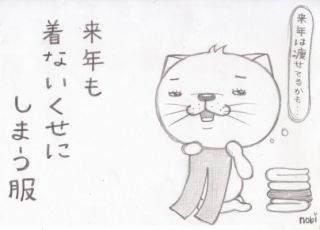 来年も
着ないくせに
しまう服
来年は痩せてるかも…
nobi